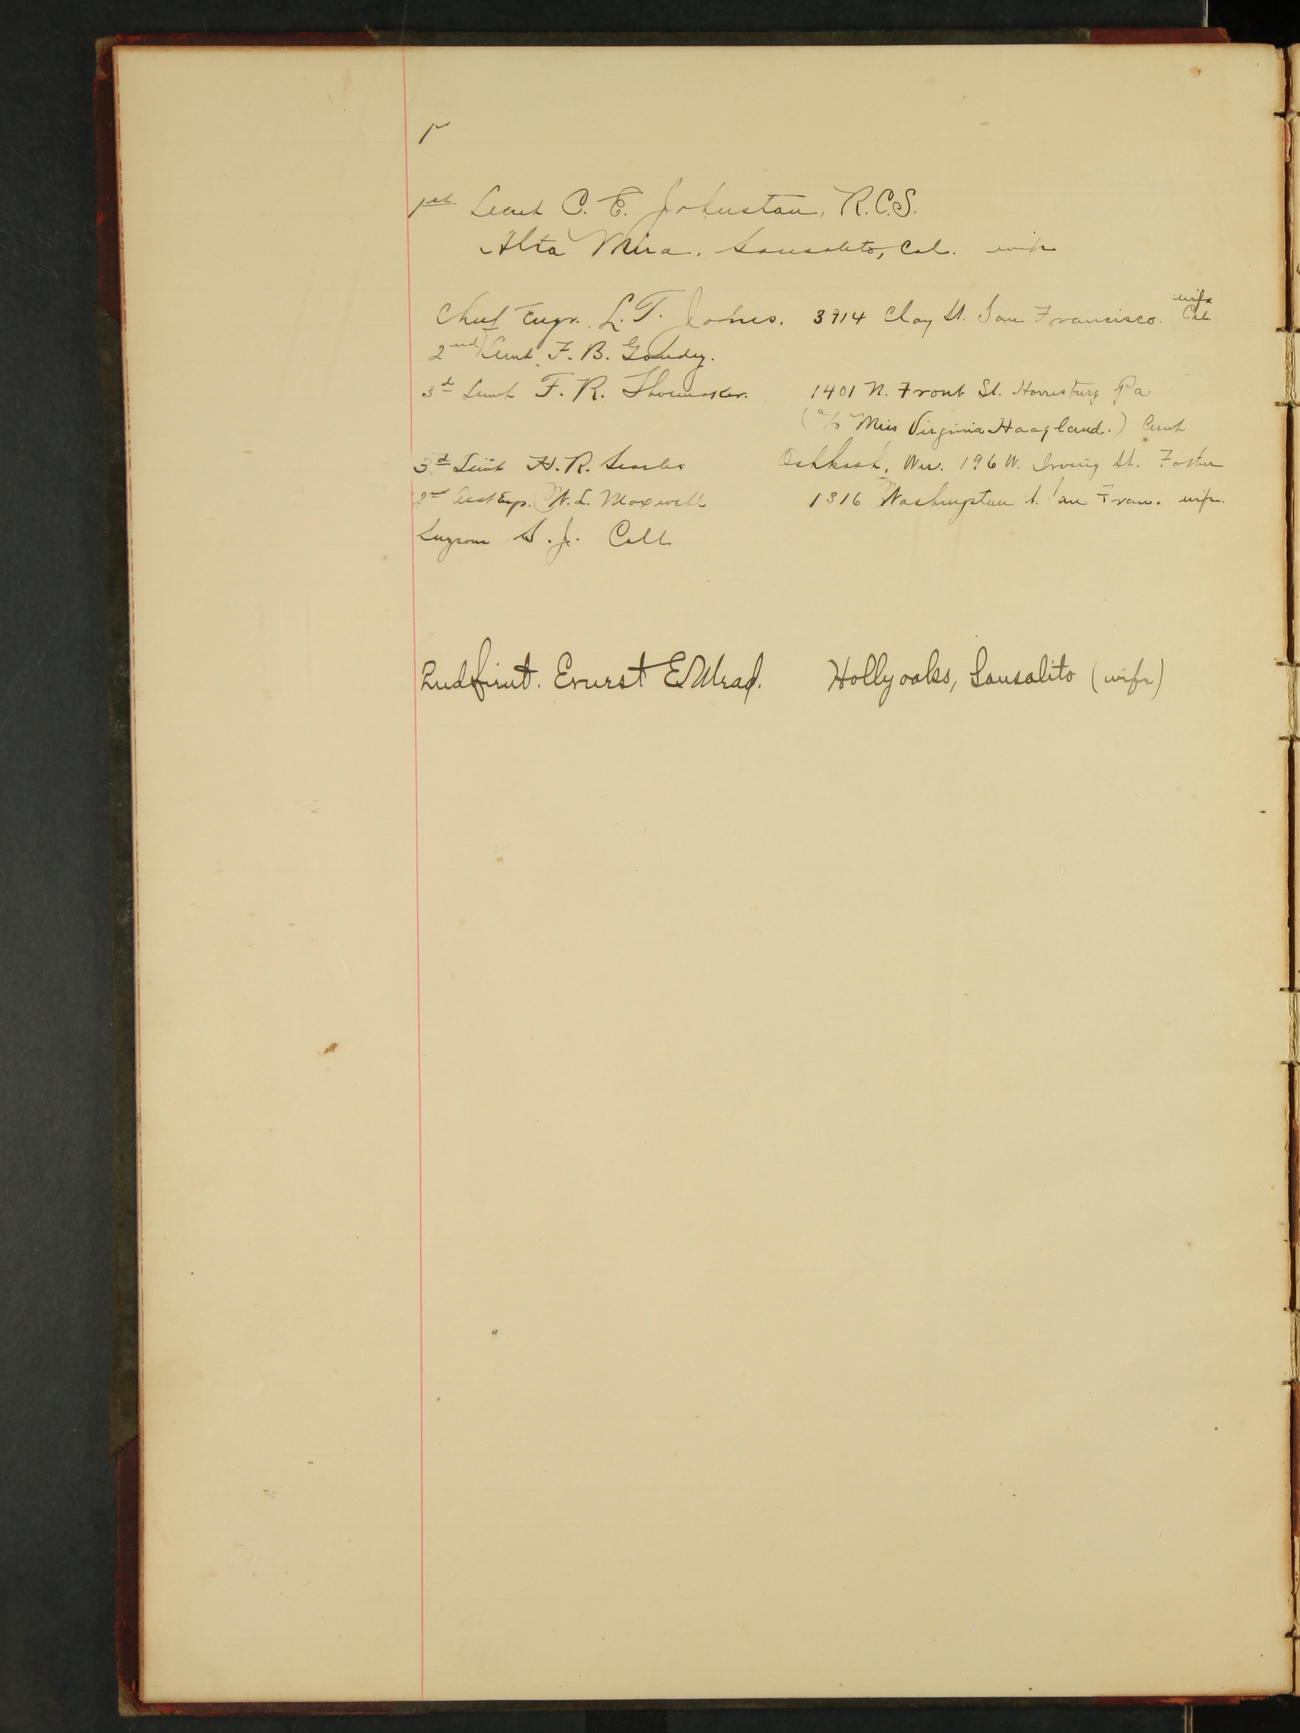 1st
1st Lieut C. E. Johnston, R.C.S.
Alta Mira, Sausalito, Cal. wife
Chief Engr. L. T. Jones. 3914 Clay St. San Francisco. Cal wife
2nd Lieut. F. B. Goudey.
3d Lieut F. R. Shoemaker. 1401 N. Front St. Harrisburg Pa
(c/o Miss Virginia Hoagland.) Aunt
3d Lieut H. R. Searles Oshkosh, Wis. 196 W. Irving St. Father
2nd Asst Engr. W. L. Maxwell 1316 Washington S. San Fran. wife.
Surgeon S. J. Call
2nd Lieut. Everest E. Mead. Hollyoaks, Sausalito (wife)